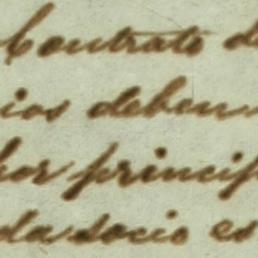 Contrato d
ios deben
por princip
da socio es